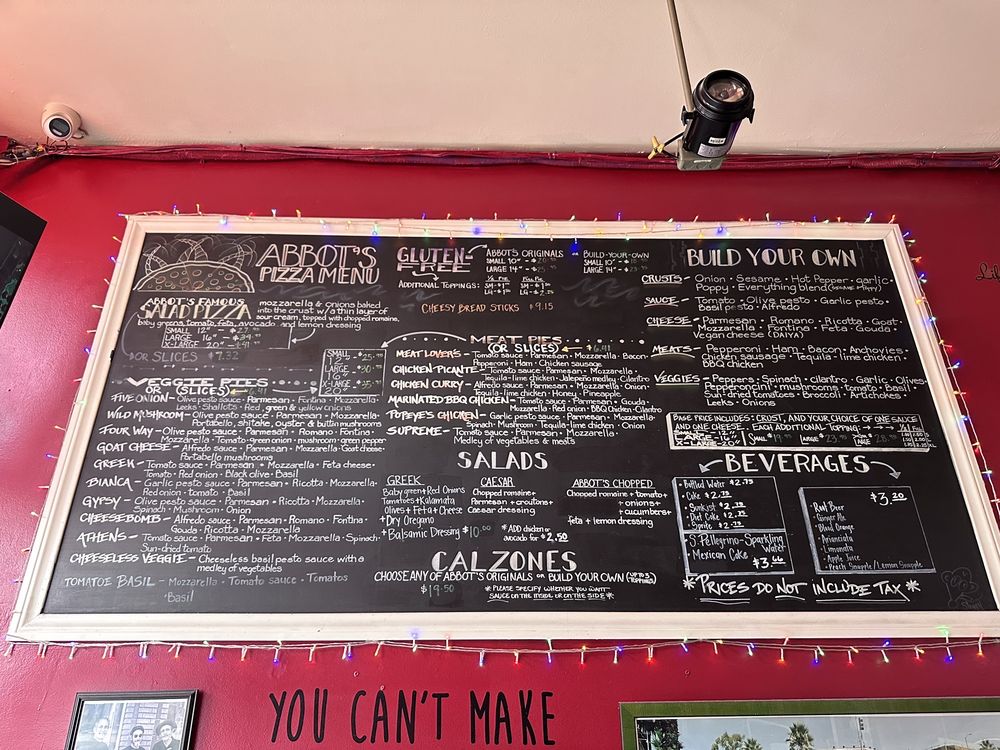 ABBOT'S
PIZZA MENU
ABBOT'S FAMOUS
SALAD PIZZA
mozzarella & onions baked
into the crust w/a thin layer of
sour cream, topped with chopped romaine,
baby greens, tomato, feta, avocado and lemon dressing
SMALL 12" -
LARGE 16" -
LARGE 20" -
OR SLICES $7.32
VEGGIE PIES
(OR SLICES)
SMALL
LARGE
X-LARGE
20"
FIVE ONION - Olive pesto sauce • Parmesan • Fontina • Mozzarella •
Leeks • Shallots • Red, green & yellow onions
WILD MUSHROOM - Olive pesto sauce • Parmesan • Mozzarella •
Portabello, shitake, oyster & button mushrooms
FOUR WAY - Olive pesto sauce • Parmesan • Romano • Fontina •
Mozzarella • Tomato • green onion • mushroom • green pepper
GOAT CHEESE - Alfredo sauce • Parmesan • Mozzarella • Goat cheese •
Portabello mushrooms
GREEK - Tomato sauce • Parmesan • Mozzarella • Feta cheese •
Tomato • Red onion • Black olive • Basil
BIANCA - Garlic pesto sauce • Parmesan • Ricotta • Mozzarella •
Red onion • tomato • Basil
GYPSY - Olive pesto sauce • Parmesan • Ricotta • Mozzarella •
Spinach • Mushroom • Onion
CHEESEBOMB - Alfredo sauce • Parmesan • Romano • Fontina •
Gouda • Ricotta • Mozzarella
ATHENS - Tomato sauce • Parmesan • Feta • Mozzarella • Spinach •
Sun-dried tomato
CHEESELESS VEGGIE - Cheeseless basil pesto sauce with a
medley of vegetables
TOMATOE BASIL - Mozzarella • Tomato sauce • Tomatos
• Basil
GLUTEN-
FREE
ABBOT'S ORIGINALS
SMALL 10" -
LARGE 14" -
BUILD-YOUR-OWN
SMALL 10" -
LARGE 14" -
ADDITIONAL TOPPINGS:
CHEESY BREAD STICKS • $9.15
MEAT PIES
(OR SLICES) $8.41
MEAT LOVER'S - Tomato sauce • Parmesan • Mozzarella • Bacon •
Pepperoni • Ham • Chicken sausage
CHICKEN PICANTE - Tomato sauce • Parmesan • Mozzarella •
Tequila-lime chicken • Jalapeño medley • Cilantro
CHICKEN CURRY - Alfredo sauce • Parmesan • Mozzarella • Onion •
Tequila-lime chicken • Honey • Pineapple
MARINATED BBQ CHICKEN - Tomato sauce • Parmesan • Gouda •
Mozzarella • Red onion • BBQ Chicken • Cilantro
POPEYE'S CHICKEN - Garlic pesto sauce • Parmesan • Mozzarella •
Spinach • Mushroom • Tequila lime chicken • Onion
SUPREME - Tomato sauce • Parmesan • Mozzarella •
Medley of vegetables & meats
SALADS
GREEK
Baby green + Red Onions
Tomatoes + Kalamata
Olives + Feta + Cheese
+ Dry Oregano
+ Balsamic Dressing $10.00
CAESAR
Chopped romaine +
Parmesan + croutons +
Caesar dressing
*ADD chicken or
avocado for $2.50
ABBOT'S CHOPPED
Chopped romaine + tomato +
+ onions +
+ cucumbers +
feta + lemon dressing
CALZONES
CHOOSE ANY OF ABBOT'S ORIGINALS or BUILD YOUR OWN (UP TO 3 TOPPINGS)
$19.50
*PLEASE SPECIFY WHETHER YOU WANT
SAUCE ON THE INSIDE OR ON THE SIDE*
BUILD YOUR OWN
CRUSTS - Onion • Sesame • Hot Pepper • garlic •
Poppy • Everything blend (sesame + Poppy)
SAUCE - Tomato • Olive pesto • Garlic pesto •
Basil pesto • Alfredo
CHEESE - Parmesan • Romano • Ricotta • Goat •
Mozzarella • Fontina • Feta • Gouda •
Vegan cheese (DAIYA)
MEATS - Pepperoni • Ham • Bacon • Anchovies •
Chicken sausage • Tequila-lime chicken •
BBQ chicken
VEGGIES - Peppers • Spinach • cilantro • Garlic • Olives •
Pepperoncini • mushrooms • tomato • Basil •
Sun-dried tomatoes • Broccoli • Artichokes •
Leeks • Onions
BASE PRICE INCLUDES: CRUST, AND YOUR CHOICE OF ONE SAUCE
AND ONE CHEESE. EACH ADDITIONAL TOPPING:
X-LARGE - 20"
BEVERAGES
• Bottled Water $2.75
• Coke $2.75
• Sunkist $2.75
• Diet Coke $2.75
• Sprite $2.75
• S. Pellegrino - Sparkling
Water
• Mexican Coke $3.66
$3.20
• Root Beer
• Ginger Ale
• Blood Orange
• Aranciata
• Limonata
• Apple Juice
• Peach Snapple / Lemon Snapple
*PRICES DO NOT INCLUDE TAX*
YOU CAN'T MAKE